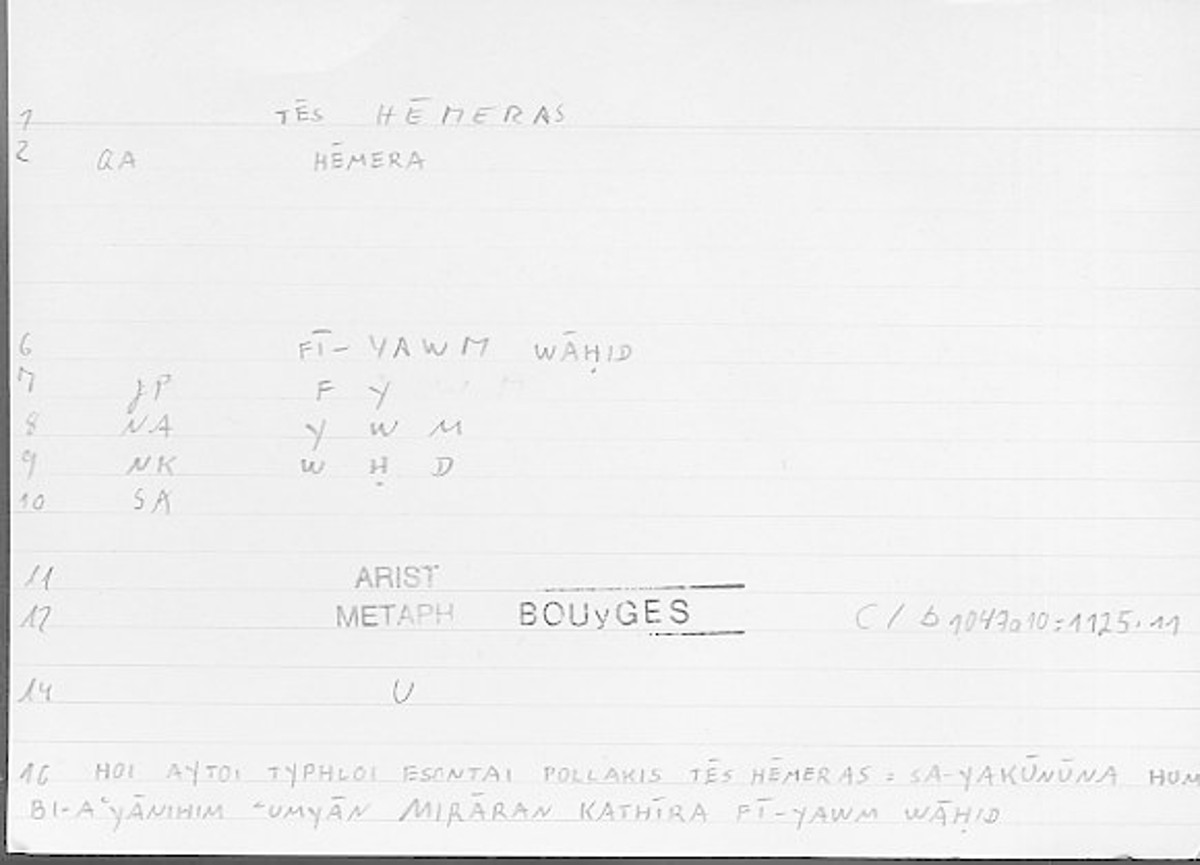 1 TĒS HĒMERAS
2 QA HĒMERA
6 FĪ- YAWM WĀḤID
7 JP F Y
8 NA Y W M
9 NK W Ḥ D
10 SA
11 ARIST
12 METAPH BOUyGES C / b 1047a10:1125.11
14 U
16 HOI AYTOI TYPHLOI ESONTAI POLLAKIS TĒS HĒMERAS : SA-YAKŪNŪNA HUM
BI-AʿYĀNIHIM ʿUMYĀN MIRĀRAN KATHĪRA FĪ-YAWM WĀḤID